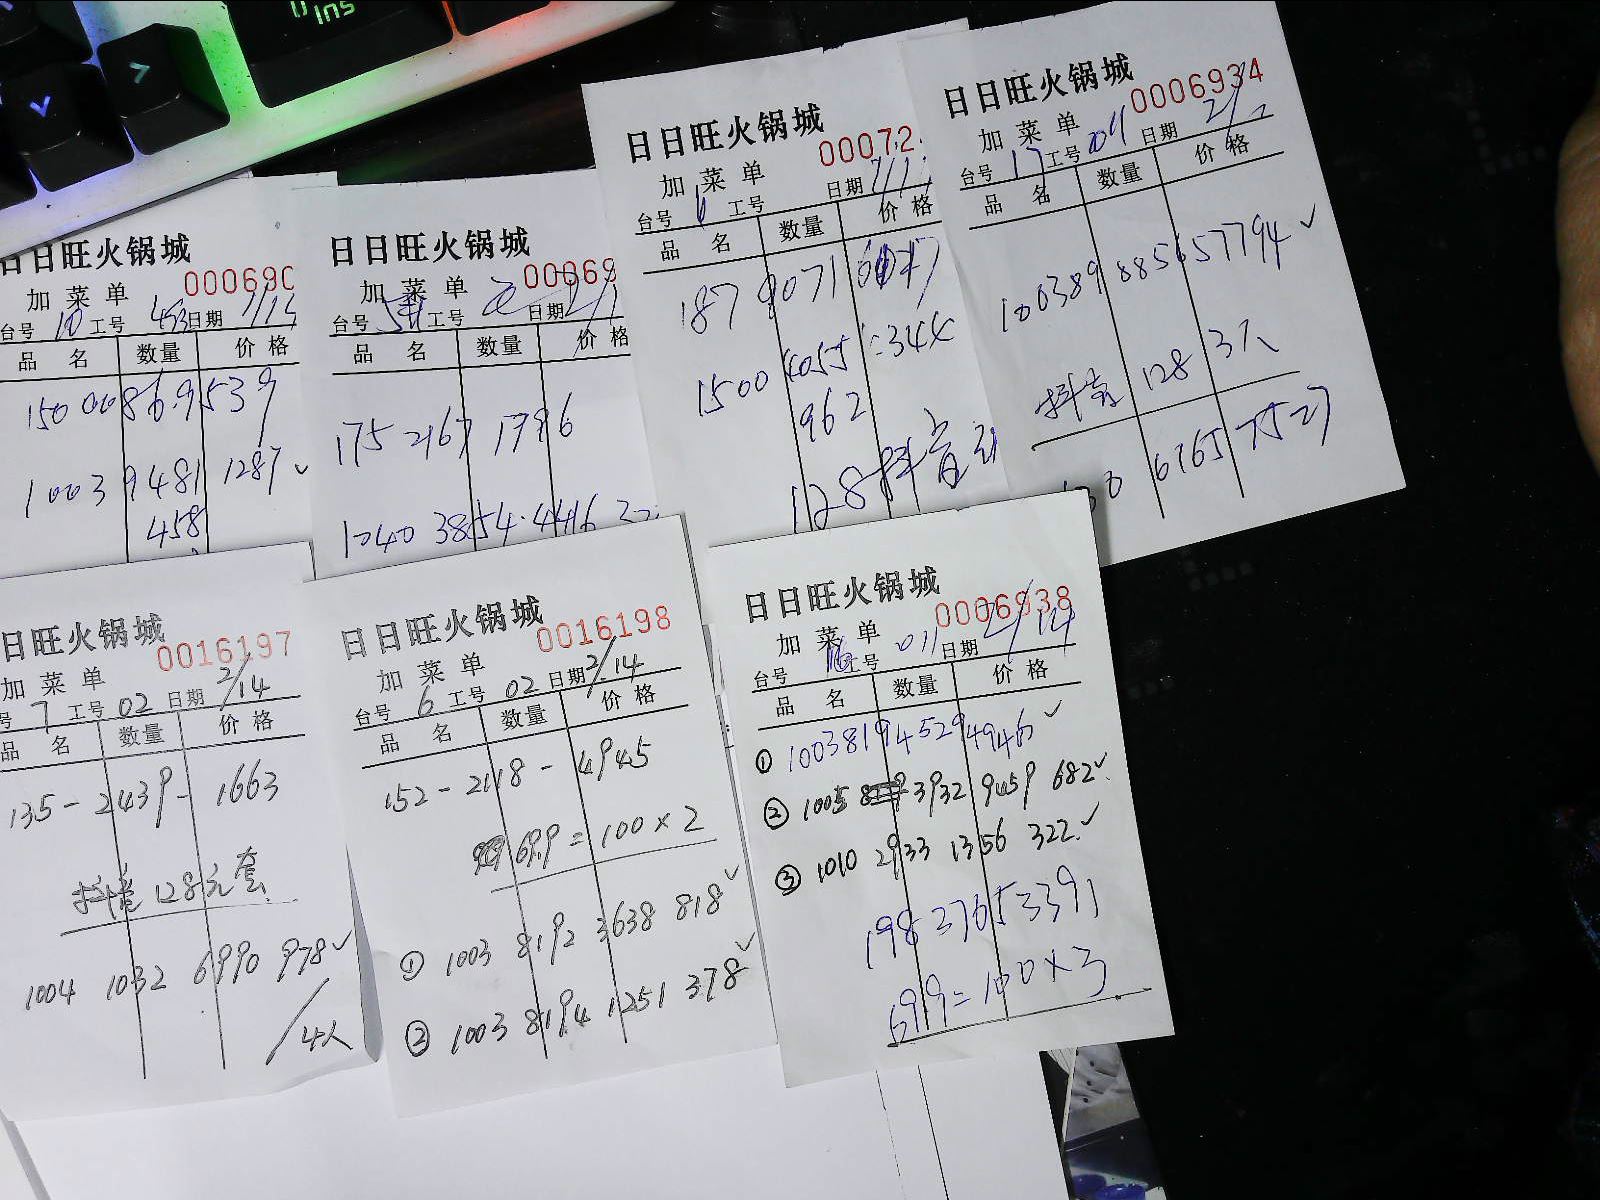 日日旺火锅城
000690
加菜单
台号 10 工号 453 日期
品 名 数量 价 格
15000869539
1003 9481 1287 ✓
458
日日旺火锅城
00069
加菜单
台号 工号 日期
品 名 数量 价 格
175 2167 1786
1040 3854.4416
日日旺火锅城
00072
加菜单
台号 6 工号 日期
品 名 数量 价 格
187 9071
1500 4055 344
962
128抖音
日日旺火锅城
0006934
加菜单
台号 17 工号 011 日期 2/12
品 名 数量 价 格
100389 885657794 ✓
抖音 128 3人
6765 7527
日日旺火锅城
0016197
加菜单
号 7 工号 02 日期 2/14
品 名 数量 价 格
135-2439-1663
抖音 128元套
1004 1032 6990 978 ✓
/4人
日日旺火锅城
0016198
加菜单
台号 6 工号 02 日期 2/14
品 名 数量 价 格
152-2118-4945
69.9=100×2
① 1003 8192 3638 818 ✓
② 1003 8194 1251 378 ✓
日日旺火锅城
0006938
加菜单
台号 16 工号 011 日期 2/14
品 名 数量 价 格
① 100381945294946 ✓
② 1005 3932 9459 682 ✓
③ 1010 2933 1356 322 ✓
198 37653391
69.9=100×3